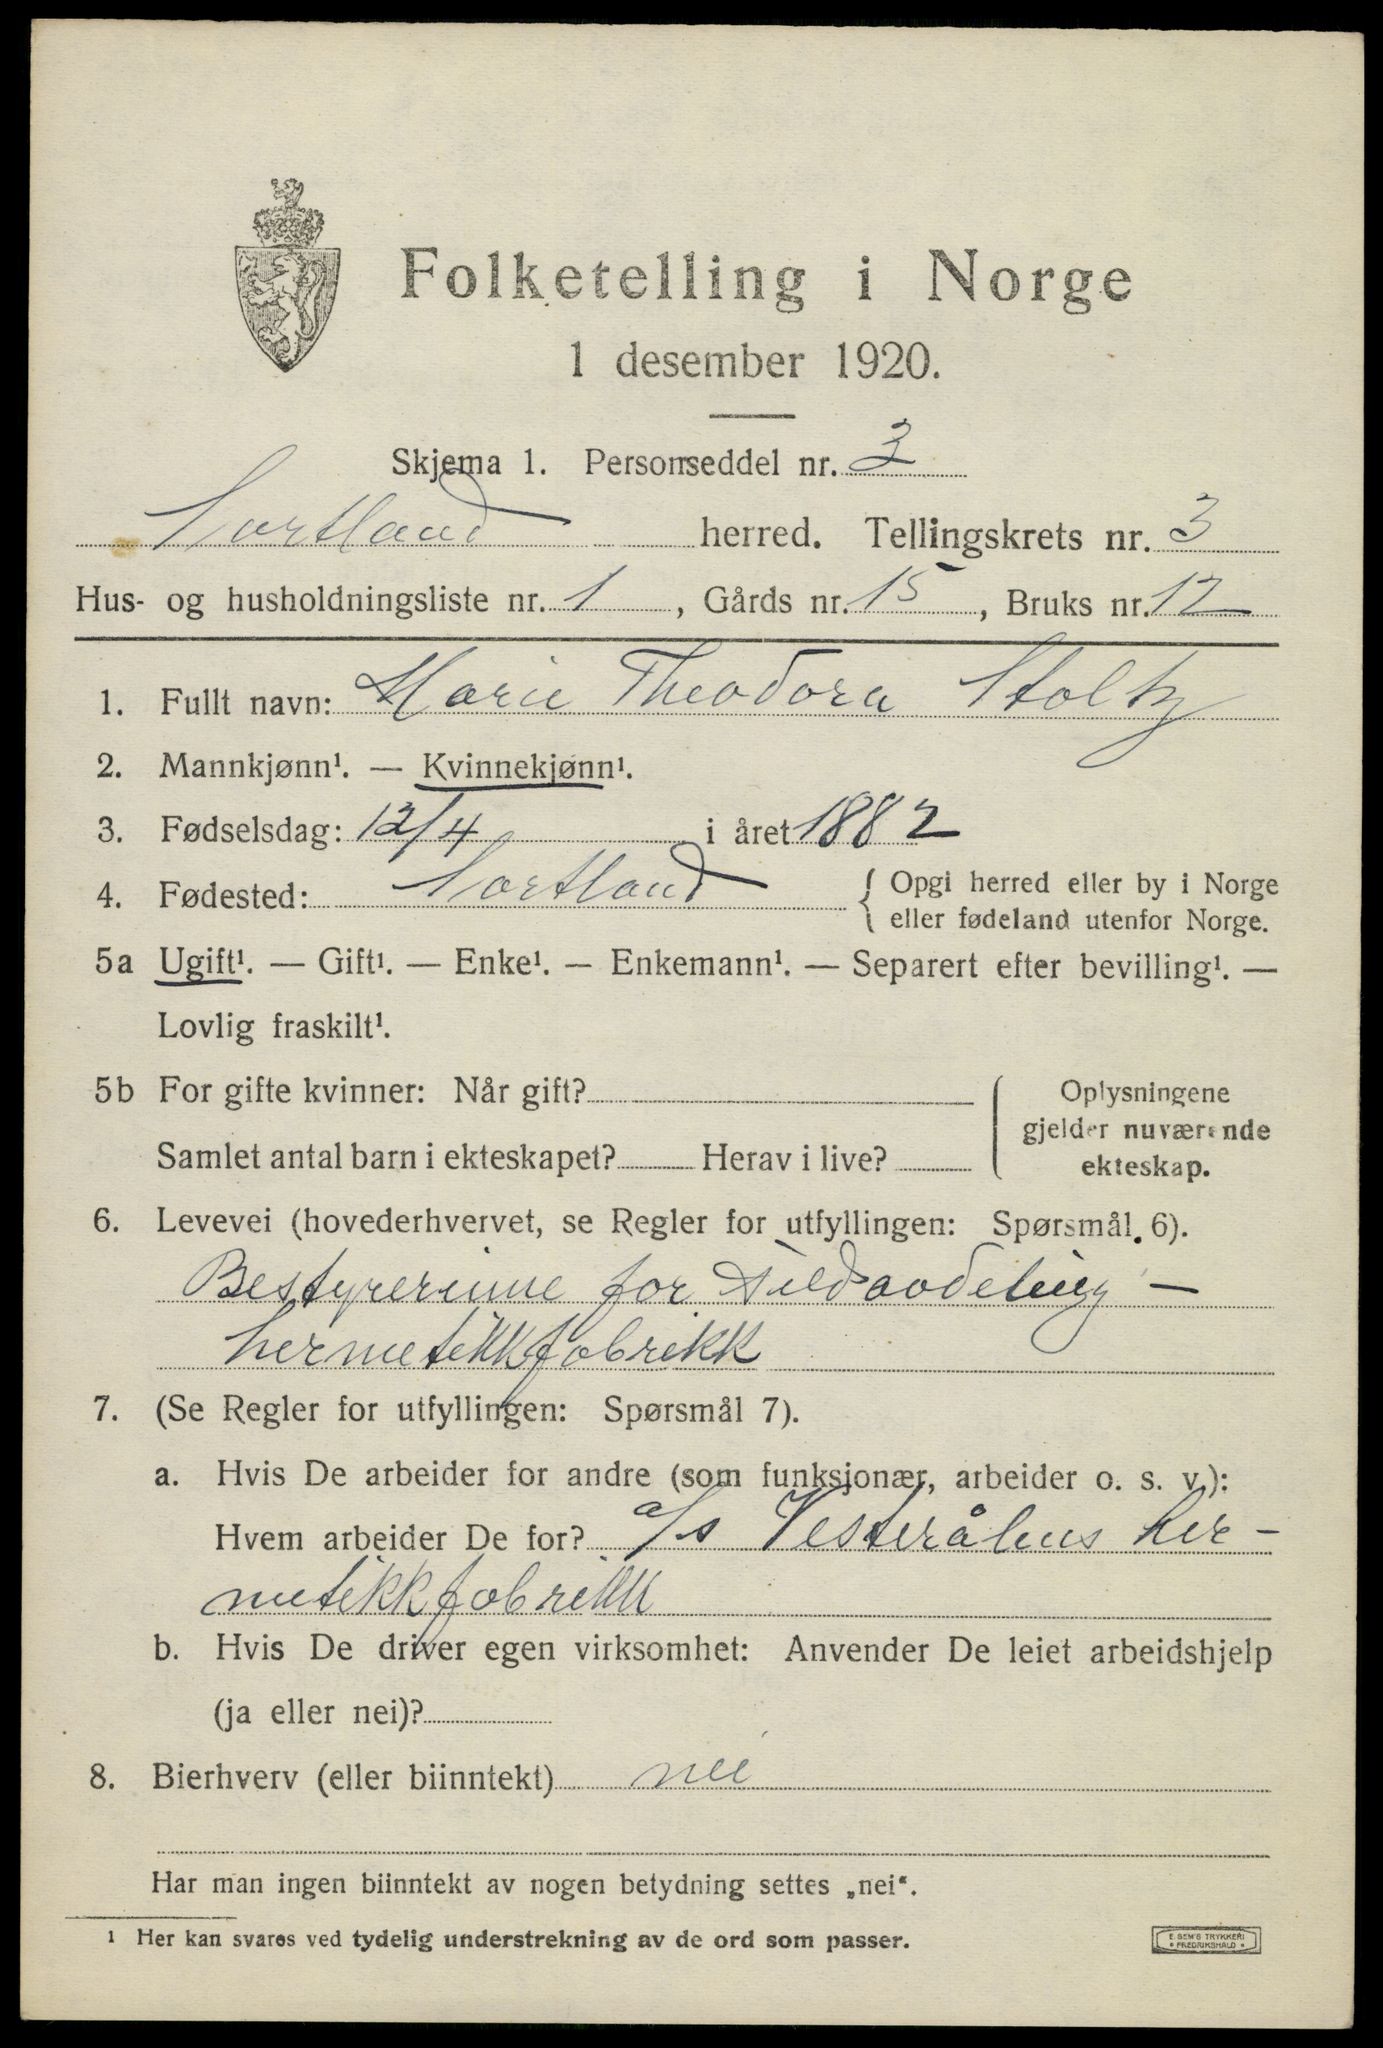 Folketelling i Norge
1 desember 1920.
Skjema 1. Personseddel nr. 3
Sortland herred. Tellingskrets nr. 3
Hus- og husholdningsliste nr. 1, Gårds nr. 15, Bruks nr. 12
1. Fullt navn: Marie Theodora Stoltz
2. Mannkjønn¹. — Kvinnekjønn¹.
3. Fødselsdag: 12/4 i året 1882
4. Fødested: Sortland { Opgi herred eller by i Norge
eller fødeland utenfor Norge.
5a Ugift¹. — Gift¹. — Enke¹. — Enkemann¹. — Separert efter bevilling¹. —
Lovlig fraskilt¹.
5b For gifte kvinner: Når gift? Oplysningene
gjelder nuværende
Samlet antal barn i ekteskapet? Herav i live? ekteskap.
6. Levevei (hovederhvervet, se Regler for utfyllingen: Spørsmål 6).
Bestyrerinne for Sildavdeling -
hermetikkfabrikk
7. (Se Regler for utfyllingen: Spørsmål 7).
a. Hvis De arbeider for andre (som funksjonær, arbeider o. s. v.):
Hvem arbeider De for? a/s Vesterålens her-
metikkfabrikk
b. Hvis De driver egen virksomhet: Anvender De leiet arbeidshjelp
(ja eller nei)?
8. Bierhverv (eller biinntekt) nei
Har man ingen biinntekt av nogen betydning settes „nei“.
1 Her kan svares ved tydelig understrekning av de ord som passer.
E. SEM'S TRYKKERI
• FREDRIKSHALD •